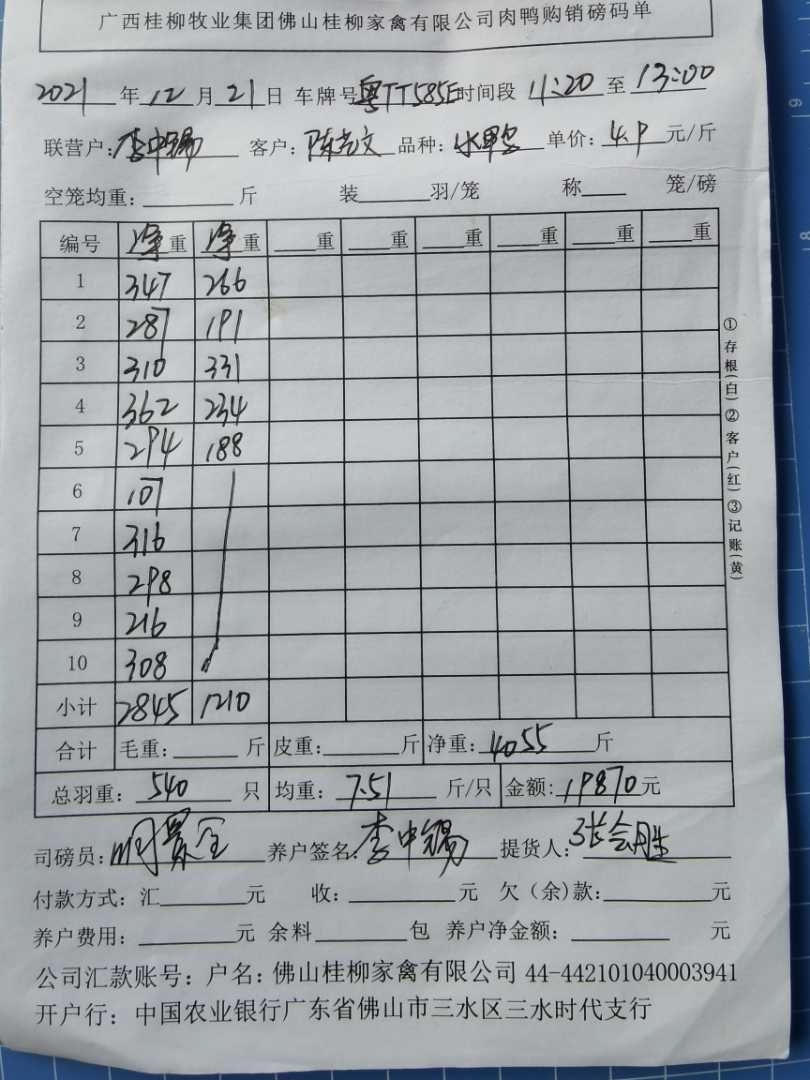 广西桂柳牧业集团佛山桂柳家禽有限公司肉鸭购销磅码单
2021 年 12 月 21 日 车牌号 粤TT585E 时间段 11:20 至 13:00
联营户: 李中锡 客户: 陈 文 品种: 水鸭 单价: 4.9 元/斤
空笼均重: 斤 装 羽/笼 称 笼/磅
编号 净重 净重 重 重 重 重 重 重
1 347 266
2 287 191
3 310 331
4 362 234
5 294 188
6 107
7 316
8 298
9 216
10 308
小计 2845 1210
合计 毛重: 斤 皮重: 斤 净重: 4055 斤
总羽重: 540 只 均重: 7.51 斤/只 金额: 19870 元
司磅员: 养户签名: 李中锡 提货人: 张会胜
付款方式: 汇 元 收: 元 欠(余)款: 元
养户费用: 元 余料 包 养户净金额: 元
公司汇款账号: 户名: 佛山桂柳家禽有限公司 44-442101040003941
开户行: 中国农业银行广东省佛山市三水区三水时代支行
①存根(白)②客户(红)③记账(黄)
9
8